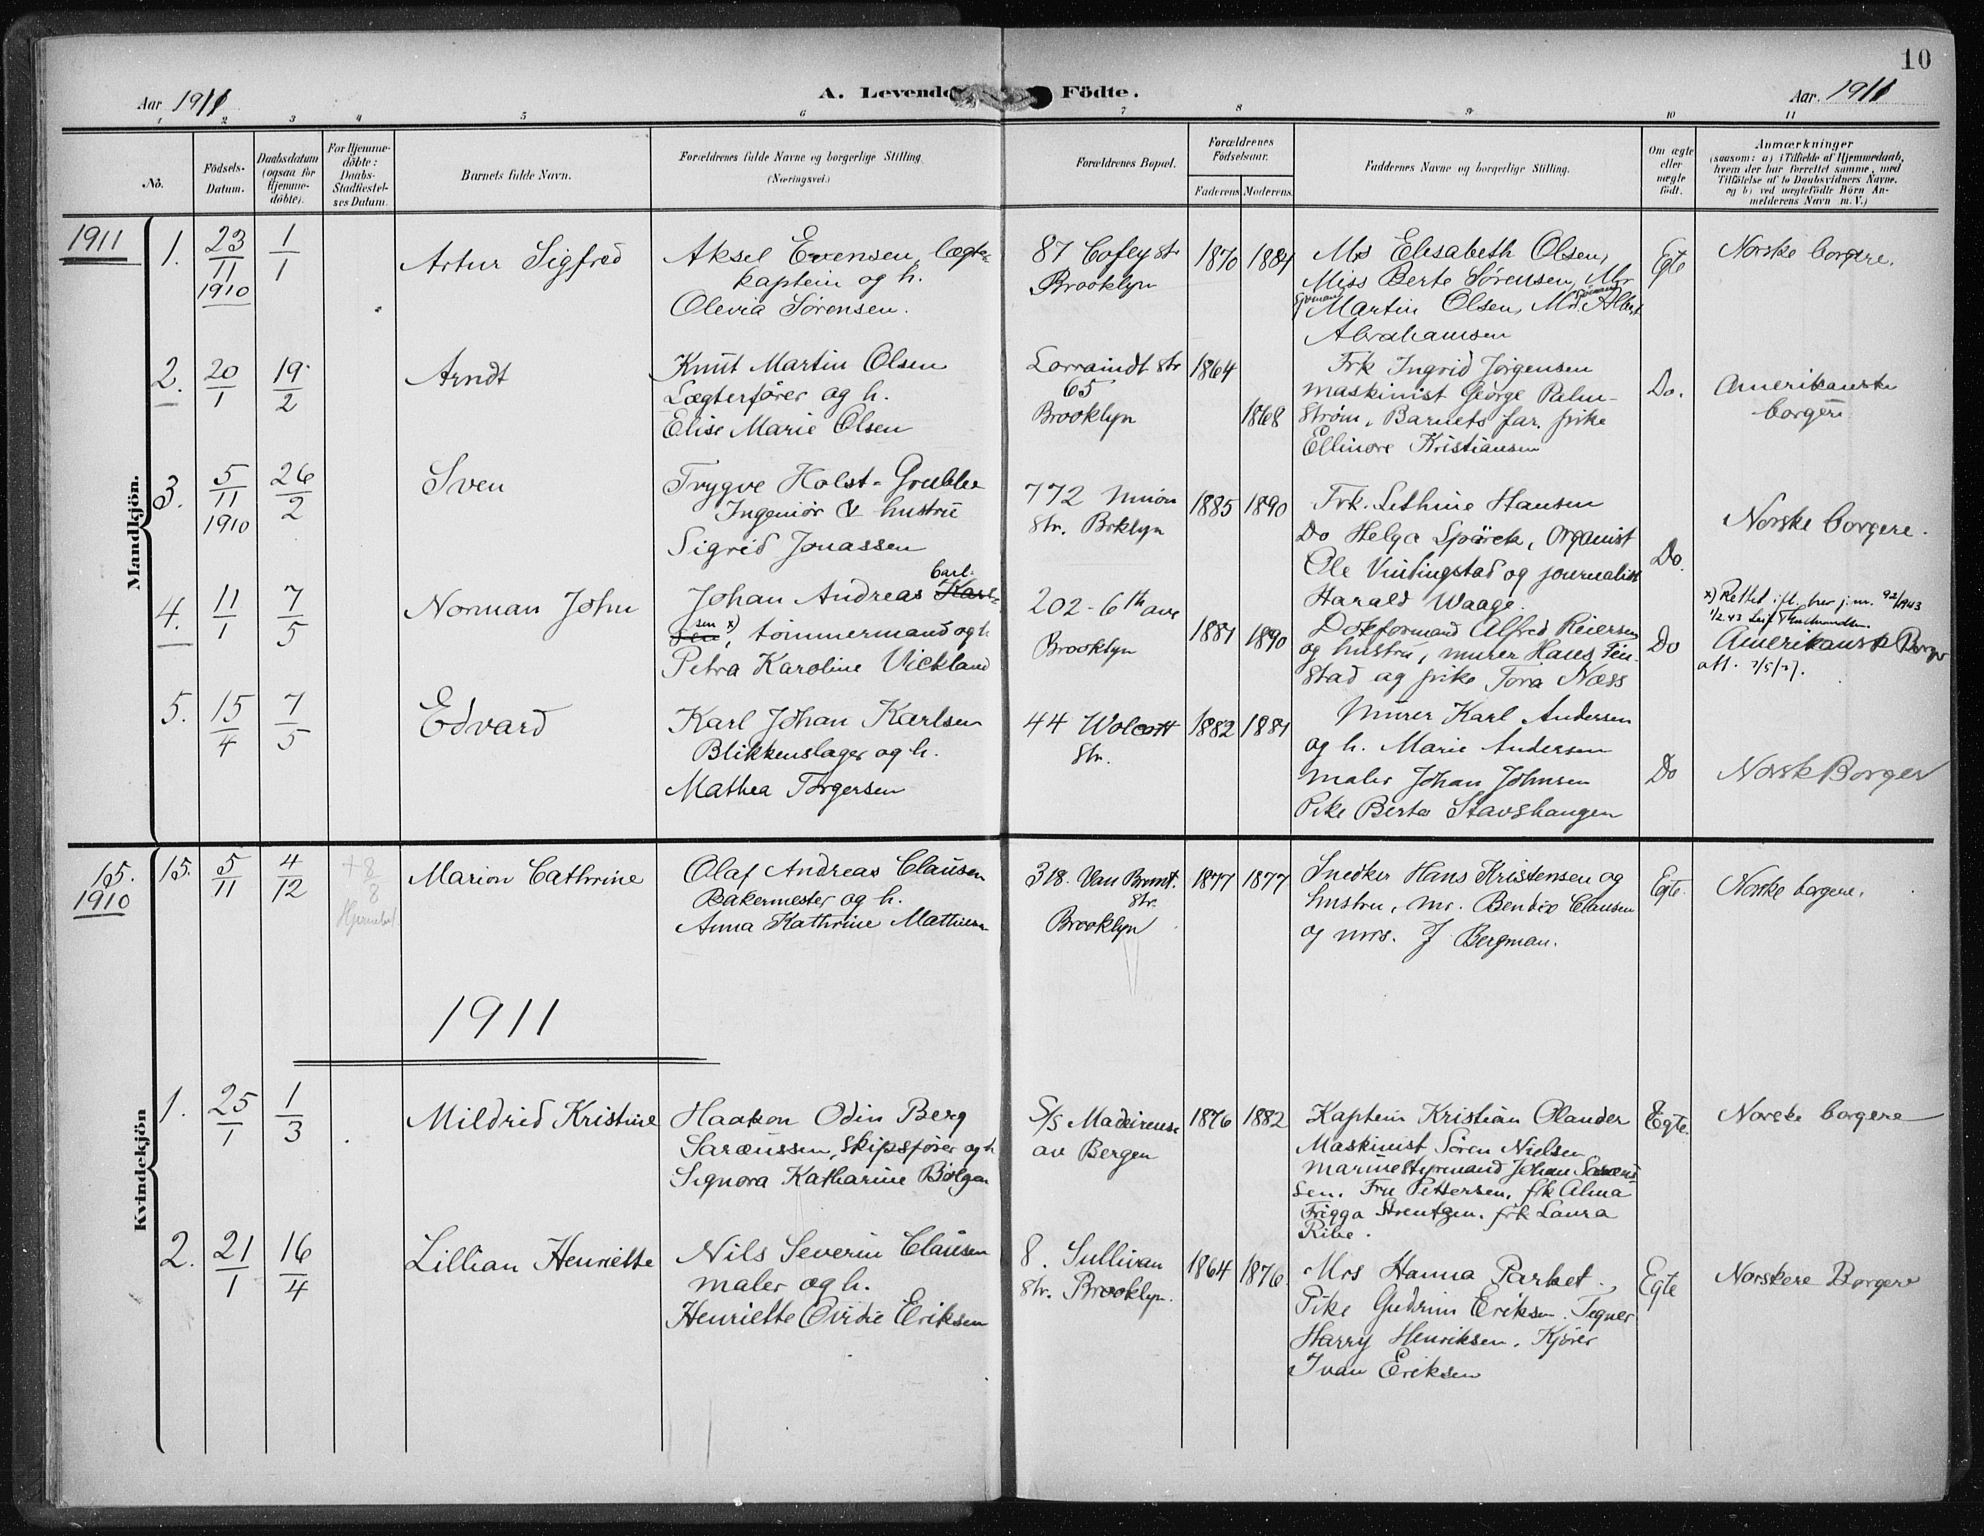 10
Aar 1911
A. Levende Födte.
Aar. 1911
1 2 3 4 5 6 7 8 9 10 11
No.
Födsels-
Datum.
Daabsdatum
(ogsaa for
Hjemme-
döbte).
For Hjemme-
döbte:
Daabs-
Stadfæstel-
ses Datum.
Barnets fulde Navn.
Forældrenes fulde Navne og borgerlige Stilling
(Næringsvei.)
Forældrenes Bopæl.
Forældrenes
Födselsaar.
Faderens Moderens
Faddernes Navne og borgerlige Stilling.
Om ægte
eller
uægte
födt.
Anmærkninger
(saasom: a) i Tilfælde af Hjemmedaab,
hvem der har forrettet samme, med
Tilföielse af to Daabsvidners Navne,
og b) ved uægtefödte Börn An-
melderens Navn m. V.)
Mandkjön.
1911
1.
23/11 1910
1/1
Artur Sigfred
Aksel Evensen, lægt-
kaptein og h.
Olevia Sørensen.
87 Cofey str
Brooklyn
1870 1884
Mrs Elisabeth Olsen,
Miss Berte Sørensen, Mr
Martin Olsen, Mr. Albert
Abrahamsen
Egte
Norske borgere.
2.
20/1
19/2
Arndt
Knut Martin Olsen
Lægterfører og h.
Elise Marie Olsen
Lorraindt str
65
Brooklyn
1864
1868
Frk Ingrid Jørgensen
maskinist George Palm-
strøm, Barnets far, frike
Ellinore Kristiansen
Do.
Amerikanske
borgere
3.
5/11 1910
26/2
Sven
Trygve Holst-Grubbe
Ingeniør & hustru
Sigrid Jonassen
772 Union
Str. Brklyn
1885 1890
Frk. Lethine Hansen
Do Helga Spørck, Organist
Ole Vindingstad og journalist
Harald Waage.
Do.
Norske borgere.
4.
11/1
7/5
Norman John
Carl-
Johan Andreas Karl-
sen x)
sen, tømmermand og h
Petra Karoline Vickland
202-6th ave
Brooklyn
1881 1890
Dokformand Alfred Reiersen
og hustru, murer Hans Fin-
stad og pike Tora Næss
Do
x) Rettet ifl. brev j.nr. 92/1943
1/2.43
Amerikansk Borger
att. 7/5/27.
5.
15/4
7/5
Edvard
Karl Johan Karlsen
Blikkenslager og h.
Mathea Torgersen
44 Wolcott
Str.
1882 1881
Murer Karl Andersen
og h. Marie Andersen
maler Johan Johnsen
Pike Berta Stavshaugen
Do
Norsk Borger
Kvindekjön
15.
1910
15.
5/11
4/12
+ 8/8
Marion Cathrine
Olaf Andreas Clausen
Bakermester og h.
Anna Kathrine Mathiesen
318. Van Brunt.
Str.
Brooklyn
1877 1877
Snedker Hans Kristensen og
hustru, mr. Bendix Clausen
og mrs. J Bergman.
Egte.
Norske borgere.
1911
1.
25/1
1/3
Mildrid Kristine
Haakon Odin Berg
Saræussen, skipsfører og h
Signora Katharine Bølgen
S/S Madeirense
av Bergen
1876 1882
Kaptein Kristian Olander
Maskinist Søren Nielsen
marinestyrmand Johan Saræus-
sen. Fru Pettersen, frk Alma
Frigga Strentzen. frk Laura
Ribe.
Egte.
Norske borgere
2.
21/1
16/4
Lillian Henriette
Nils Severin Clausen
maler og h.
Henriette Ovidie Eriksen
8. Sullivan
Str. Brooklyn.
1864 1876
Mrs Hanna Parbet.
Pike Gudrun Eriksen. Tegner
Harry Henriksen. Kjører
Ivan Eriksen
Egte
Norskere Borgere